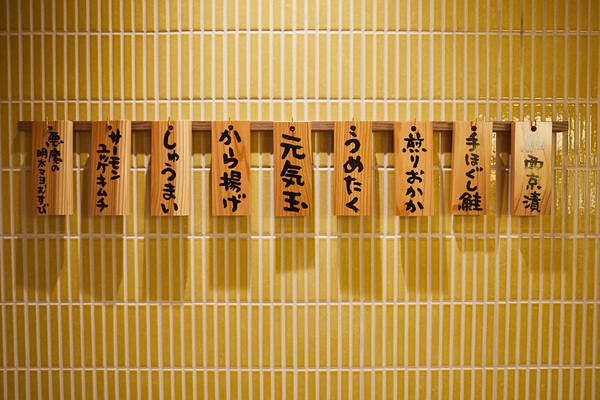 悪魔の
明太マヨおすび
サーモン
ユッケキムチ
しゅうまい
から揚げ
元気玉
うめたく
煎りおかか
手ほぐし鮭
西京漬